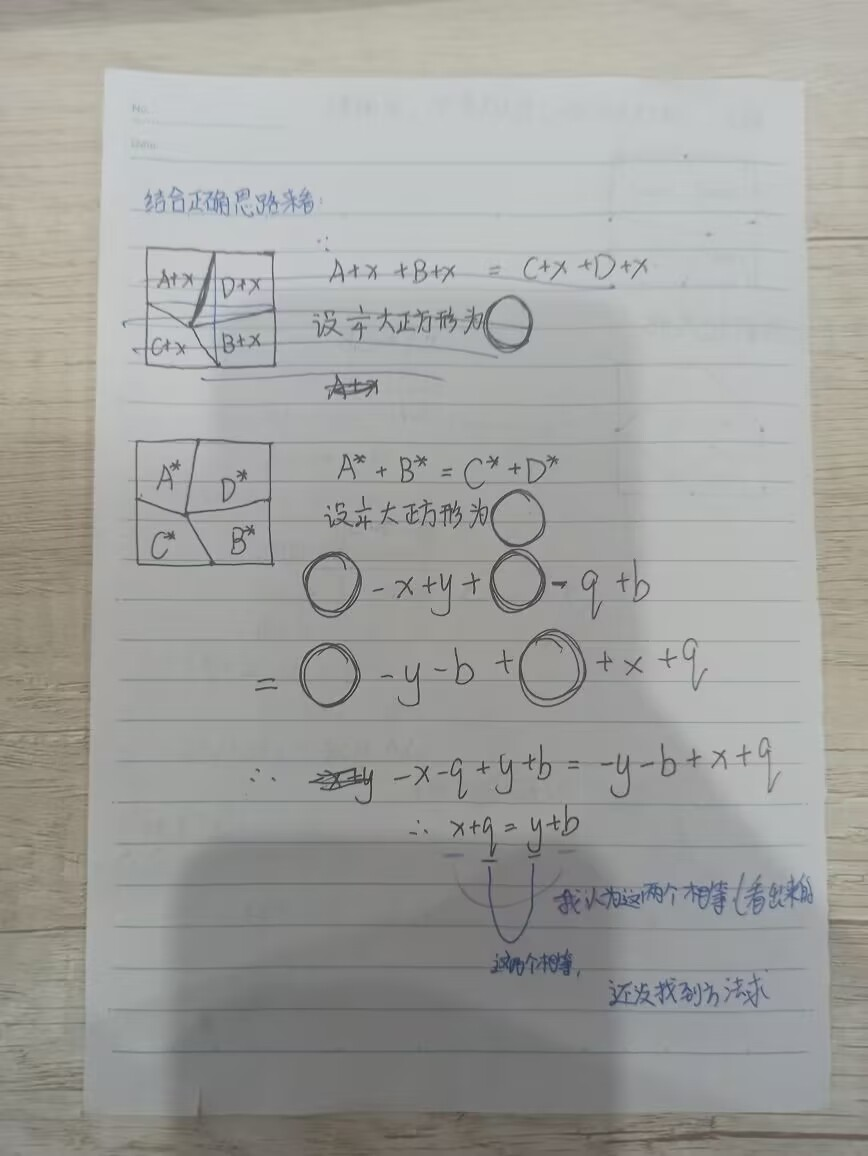 No.
Date
结合正确思路来看:
∵
A+x D+x
C+x B+x
A+x +B+x = C+x +D+x
设 1/4 大正方形为◯
A+x
A* D*
C* B*
A* + B* = C* + D*
设 1/4 大正方形为◯
◯ - x + y + ◯ - q + b
= ◯ - y - b + ◯ + x + q
∴ -x - q + y + b = -y - b + x + q
∴ x+q = y+b
我认为这两个相等(看出来的
这两个相等,
还没找到方法求